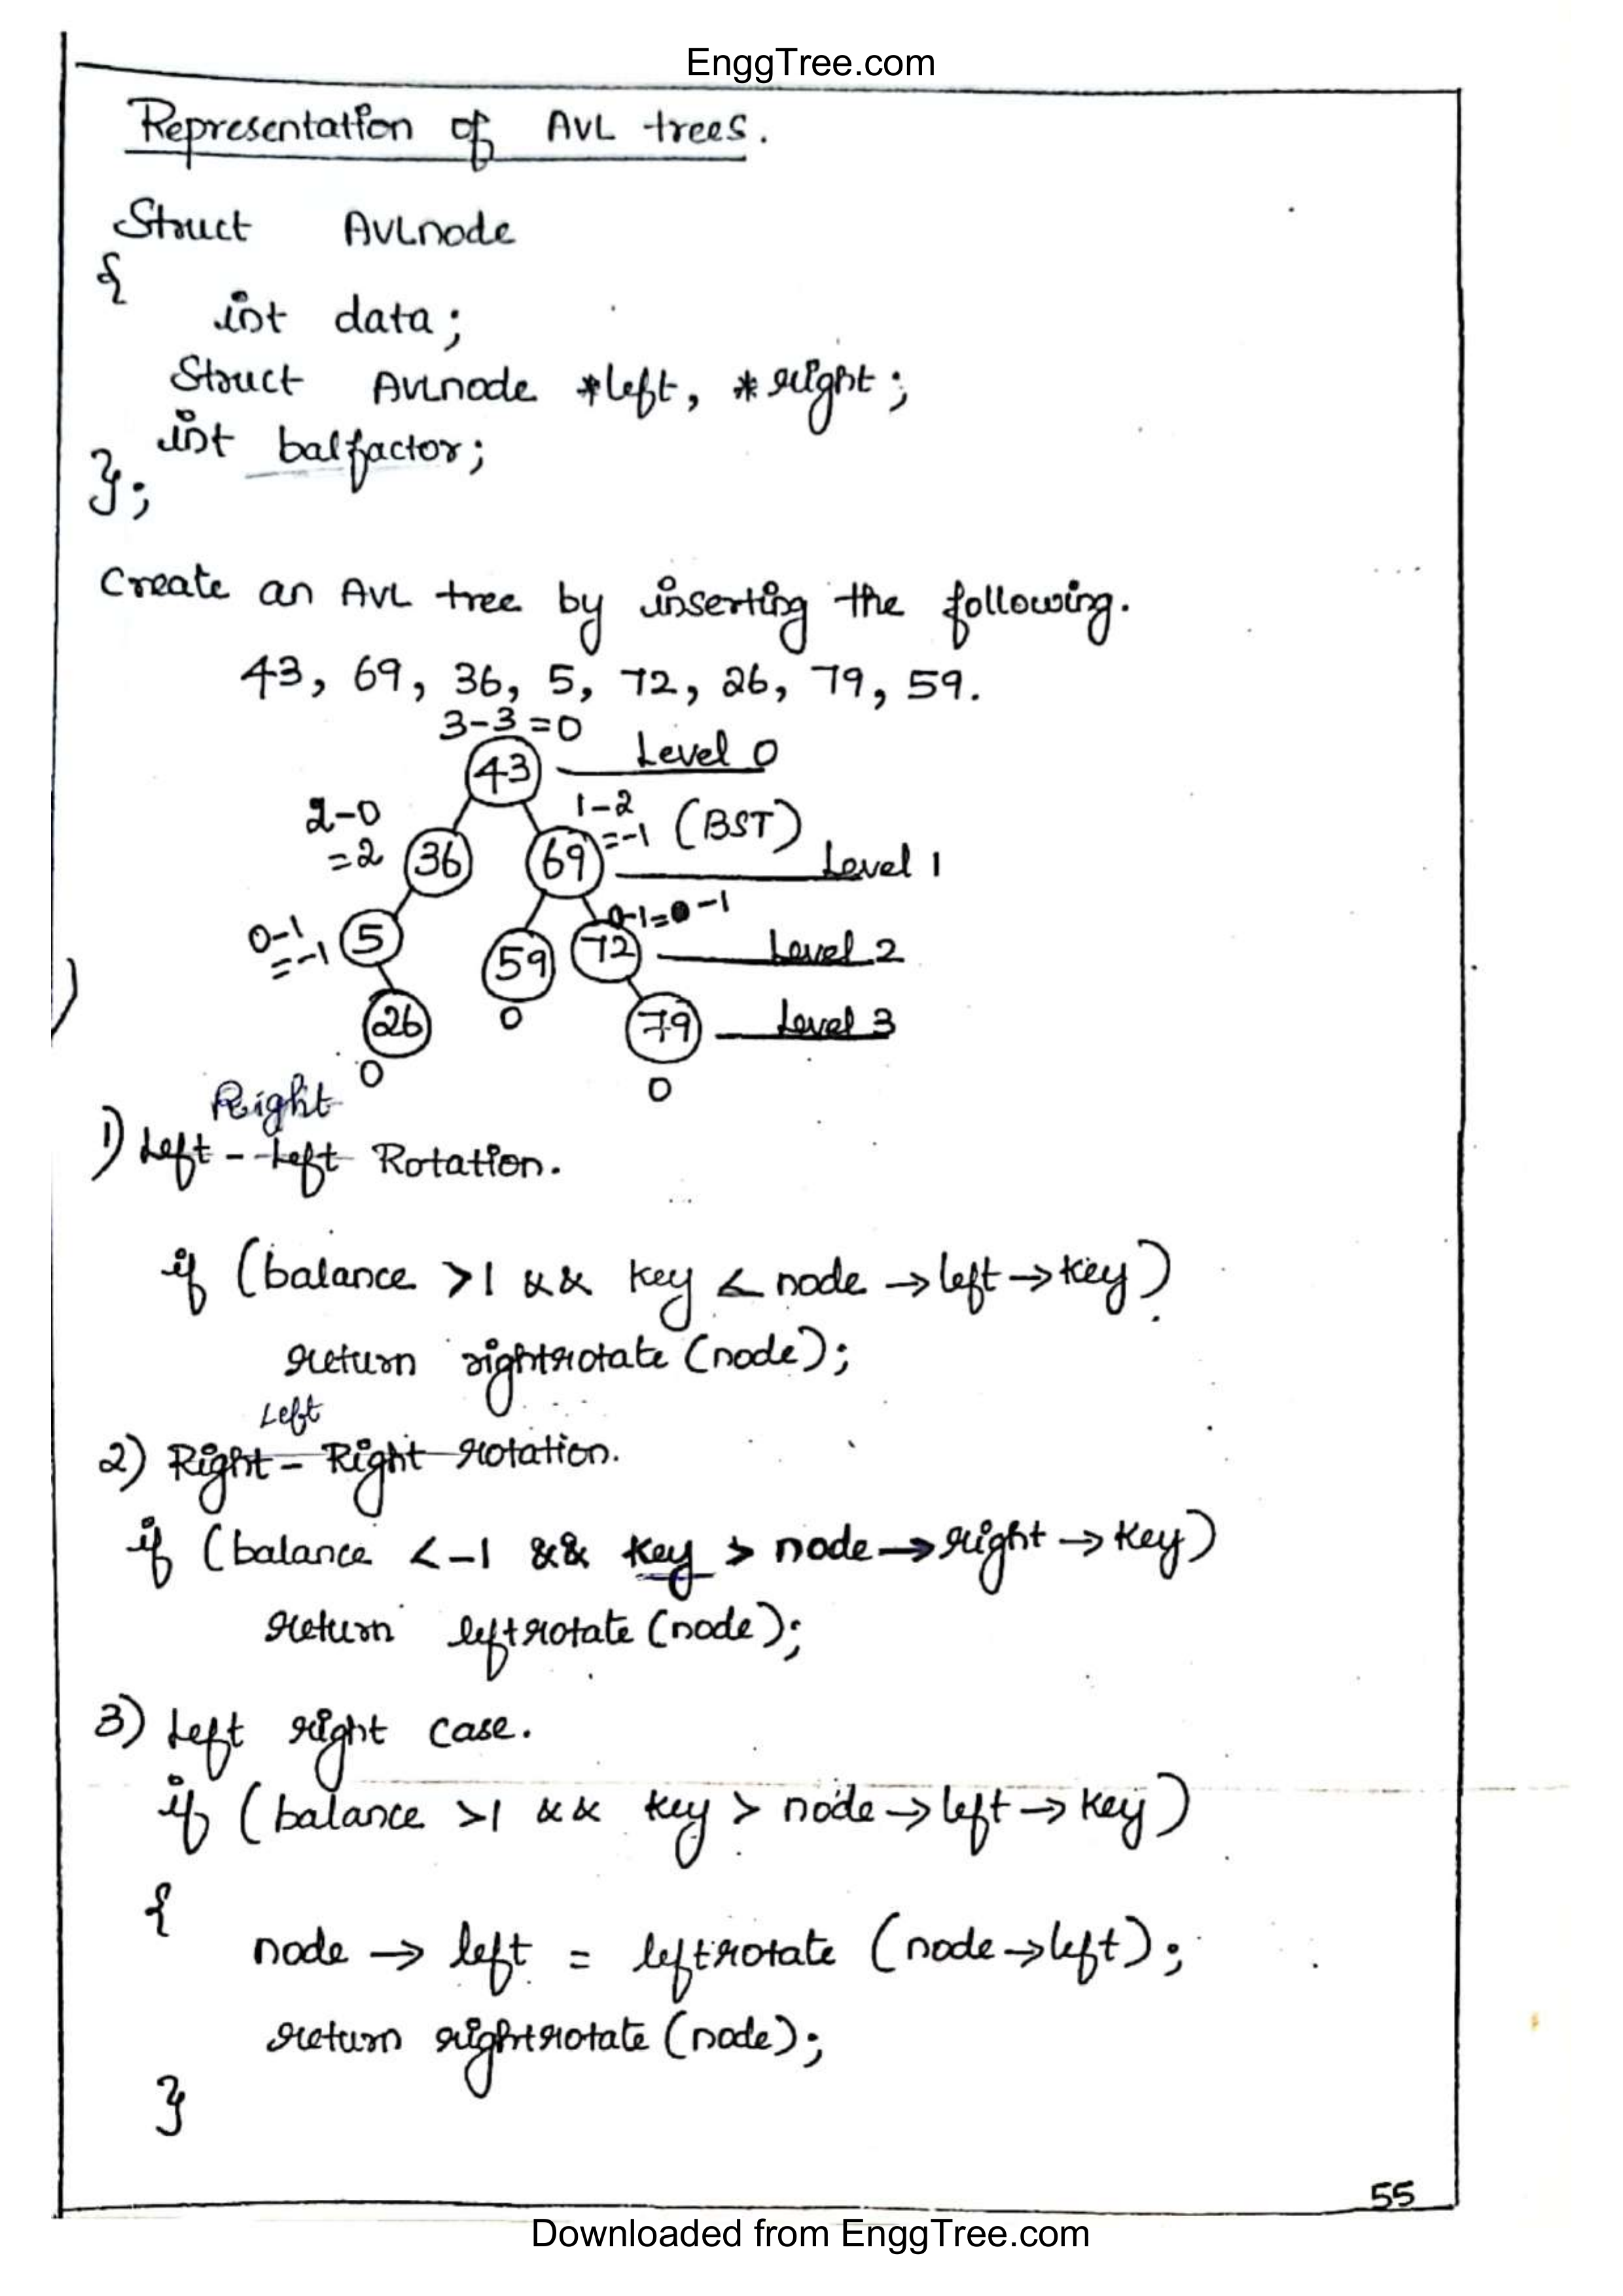 EnggTree.com
Representation of AVL trees.
Struct AVLnode
{
int data;
Struct AVLnode *left, *right;
int balfactor;
};
Create an AVL tree by inserting the following.
43, 69, 36, 5, 72, 26, 79, 59.
3-3=0
43 Level 0
2-0 1-2
=2 36 69 =-1 (BST)
Level 1
0-1 0-1=0-1
=-1 5 59 72 Level 2
0
26 79 Level 3
0 0
Right
1) Left - Left Rotation.
if (balance >1 && key < node → left → key)
return rightrotate (node);
Left
2) Right - Right rotation.
if (balance <-1 && key > node → right → key)
return leftrotate (node);
3) Left right case.
if (balance >1 && key > node → left → key)
{
node → left = leftrotate (node → left);
return rightrotate (node);
}
55
Downloaded from EnggTree.com